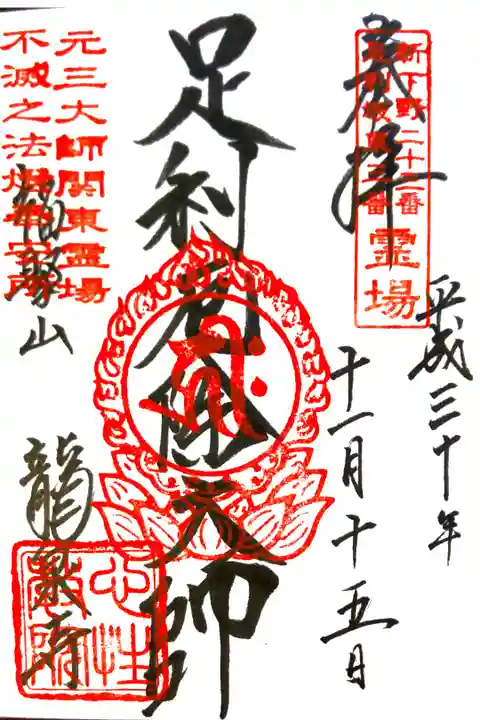 平成三十年
十一月十五日
奉拝
新下野
霊場
足利厄除大師
元三大師関東霊場
不滅之法燈奉安所
福聚山
龍泉寺